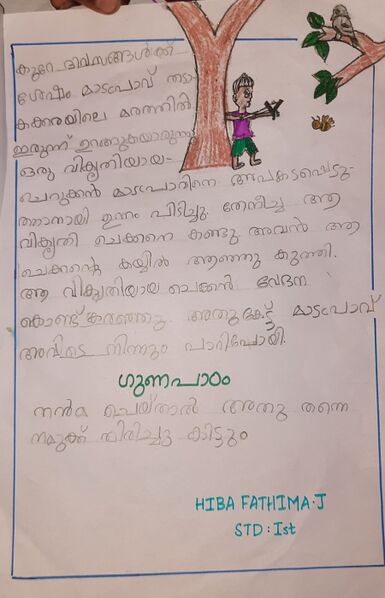 കുറേ ദിവസങ്ങൾക്ക്
ശേഷം മാടപ്രാവ് തടാ
കക്കരയിലെ മരത്തിൽ
ഇരുന്ന് ഉറങ്ങുകയായിരുന്നു
ഒരു വികൃതിയായ-
ചെറുക്കൻ മാടപ്രാവിനെ അപകടപ്പെടു-
ത്താനായി ഉന്നം പിടിച്ചു. തേനീച്ച ആ
വികൃതി ചെക്കനെ കണ്ടു. അവൻ ആ
ചെക്കന്റെ കയ്യിൽ ആഞ്ഞു കുത്തി.
ആ വികൃതിയായ ചെക്കൻ വേദന
കൊണ്ട് കരഞ്ഞു. അതുകേട്ട് മാടപ്രാവ്
അവിടെ നിന്നും പാറിപ്പോയി.
ഗുണപാഠം
നന്മ ചെയ്താൽ അതു തന്നെ
നമുക്ക് തിരിച്ചു കിട്ടും
HIBA FATHIMA.J
STD : Ist